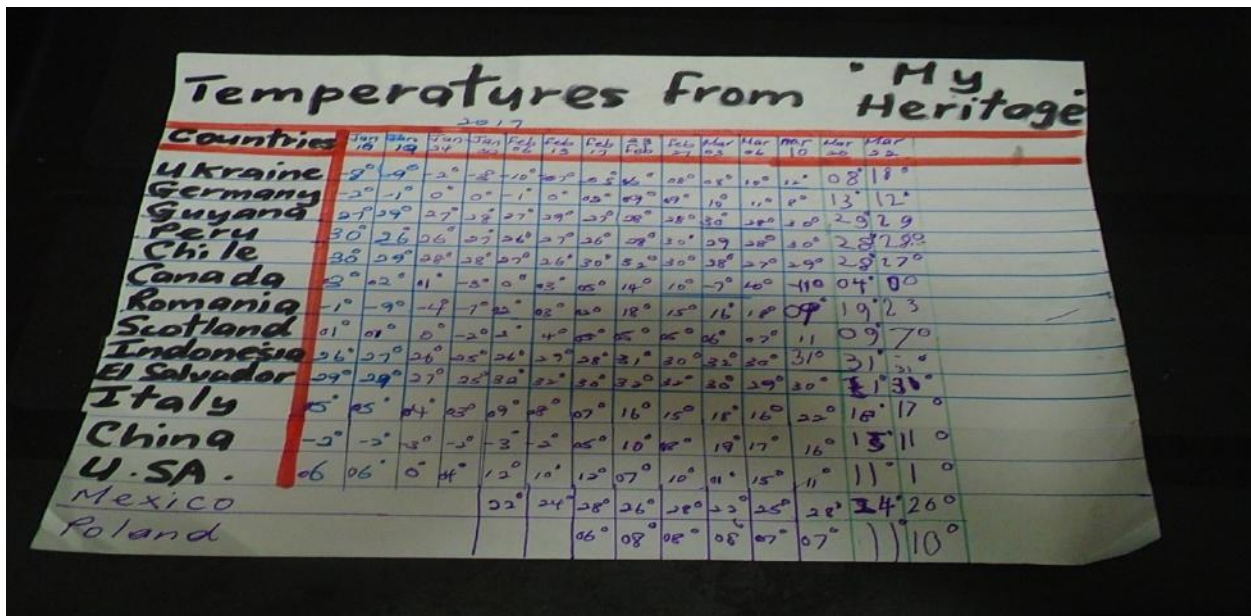 Temperatures From "My Heritage"
2017
Countries Jan 18 Jan 19 Jan 24 Jan Feb 06 Feb 13 Feb 17 23 Feb Feb 27 Mar 03 Mar 06 Mar 10 Mar 20 Mar 22
Ukraine -8° -9° -2° -8 -10° 08° 08° 10° 12° 08° 18°
Germany -2° -1° 0 0° -1° 0° 02° 09° 09° 10° 11° 8° 13° 12°
Guyana 27° 29° 27° 28 27° 29° 27° 28° 28° 30° 28° 30° 29° 29
Peru 30° 26° 26° 27° 26° 27° 26° 28° 30° 29 28° 30° 28° 28°
Chile 30° 29° 28° 28° 27° 26° 30° 32° 30° 28° 27° 29° 28° 27°
Canada -3° 02° 01 -3° 0° 03° 05° 14° 10° -7° 10° -11° 04° 00
Romania -1° -9° -4° -7° 03° 18° 15° 16° 18° 09° 19° 23
Scotland 01° 01° 0° -2° 2° 4° 05° 05° 05° 06° 07° 11 09° 7°
Indonesia 26° 27° 26° 25° 26° 29° 28° 31° 30° 32° 30° 31° 31° 31°
El Salvador 29° 29° 27° 25° 32° 32° 30° 32° 32° 30° 29° 30°
Italy 05° 05° 04° 03° 09° 08° 07° 16° 15° 18° 16° 22° 18° 17°
China -2° -2° -3° -2° -3° -2° 05° 10° 19° 17° 16° 11°
U.SA. 06 06° 0° 12° 10° 12° 07° 10° 01° 15° 11° 11° 1°
Mexico 22° 24° 28° 26° 28° 22° 25° 28° 24° 26°
Poland 06° 08° 08° 08° 07° 07° 11° 10°